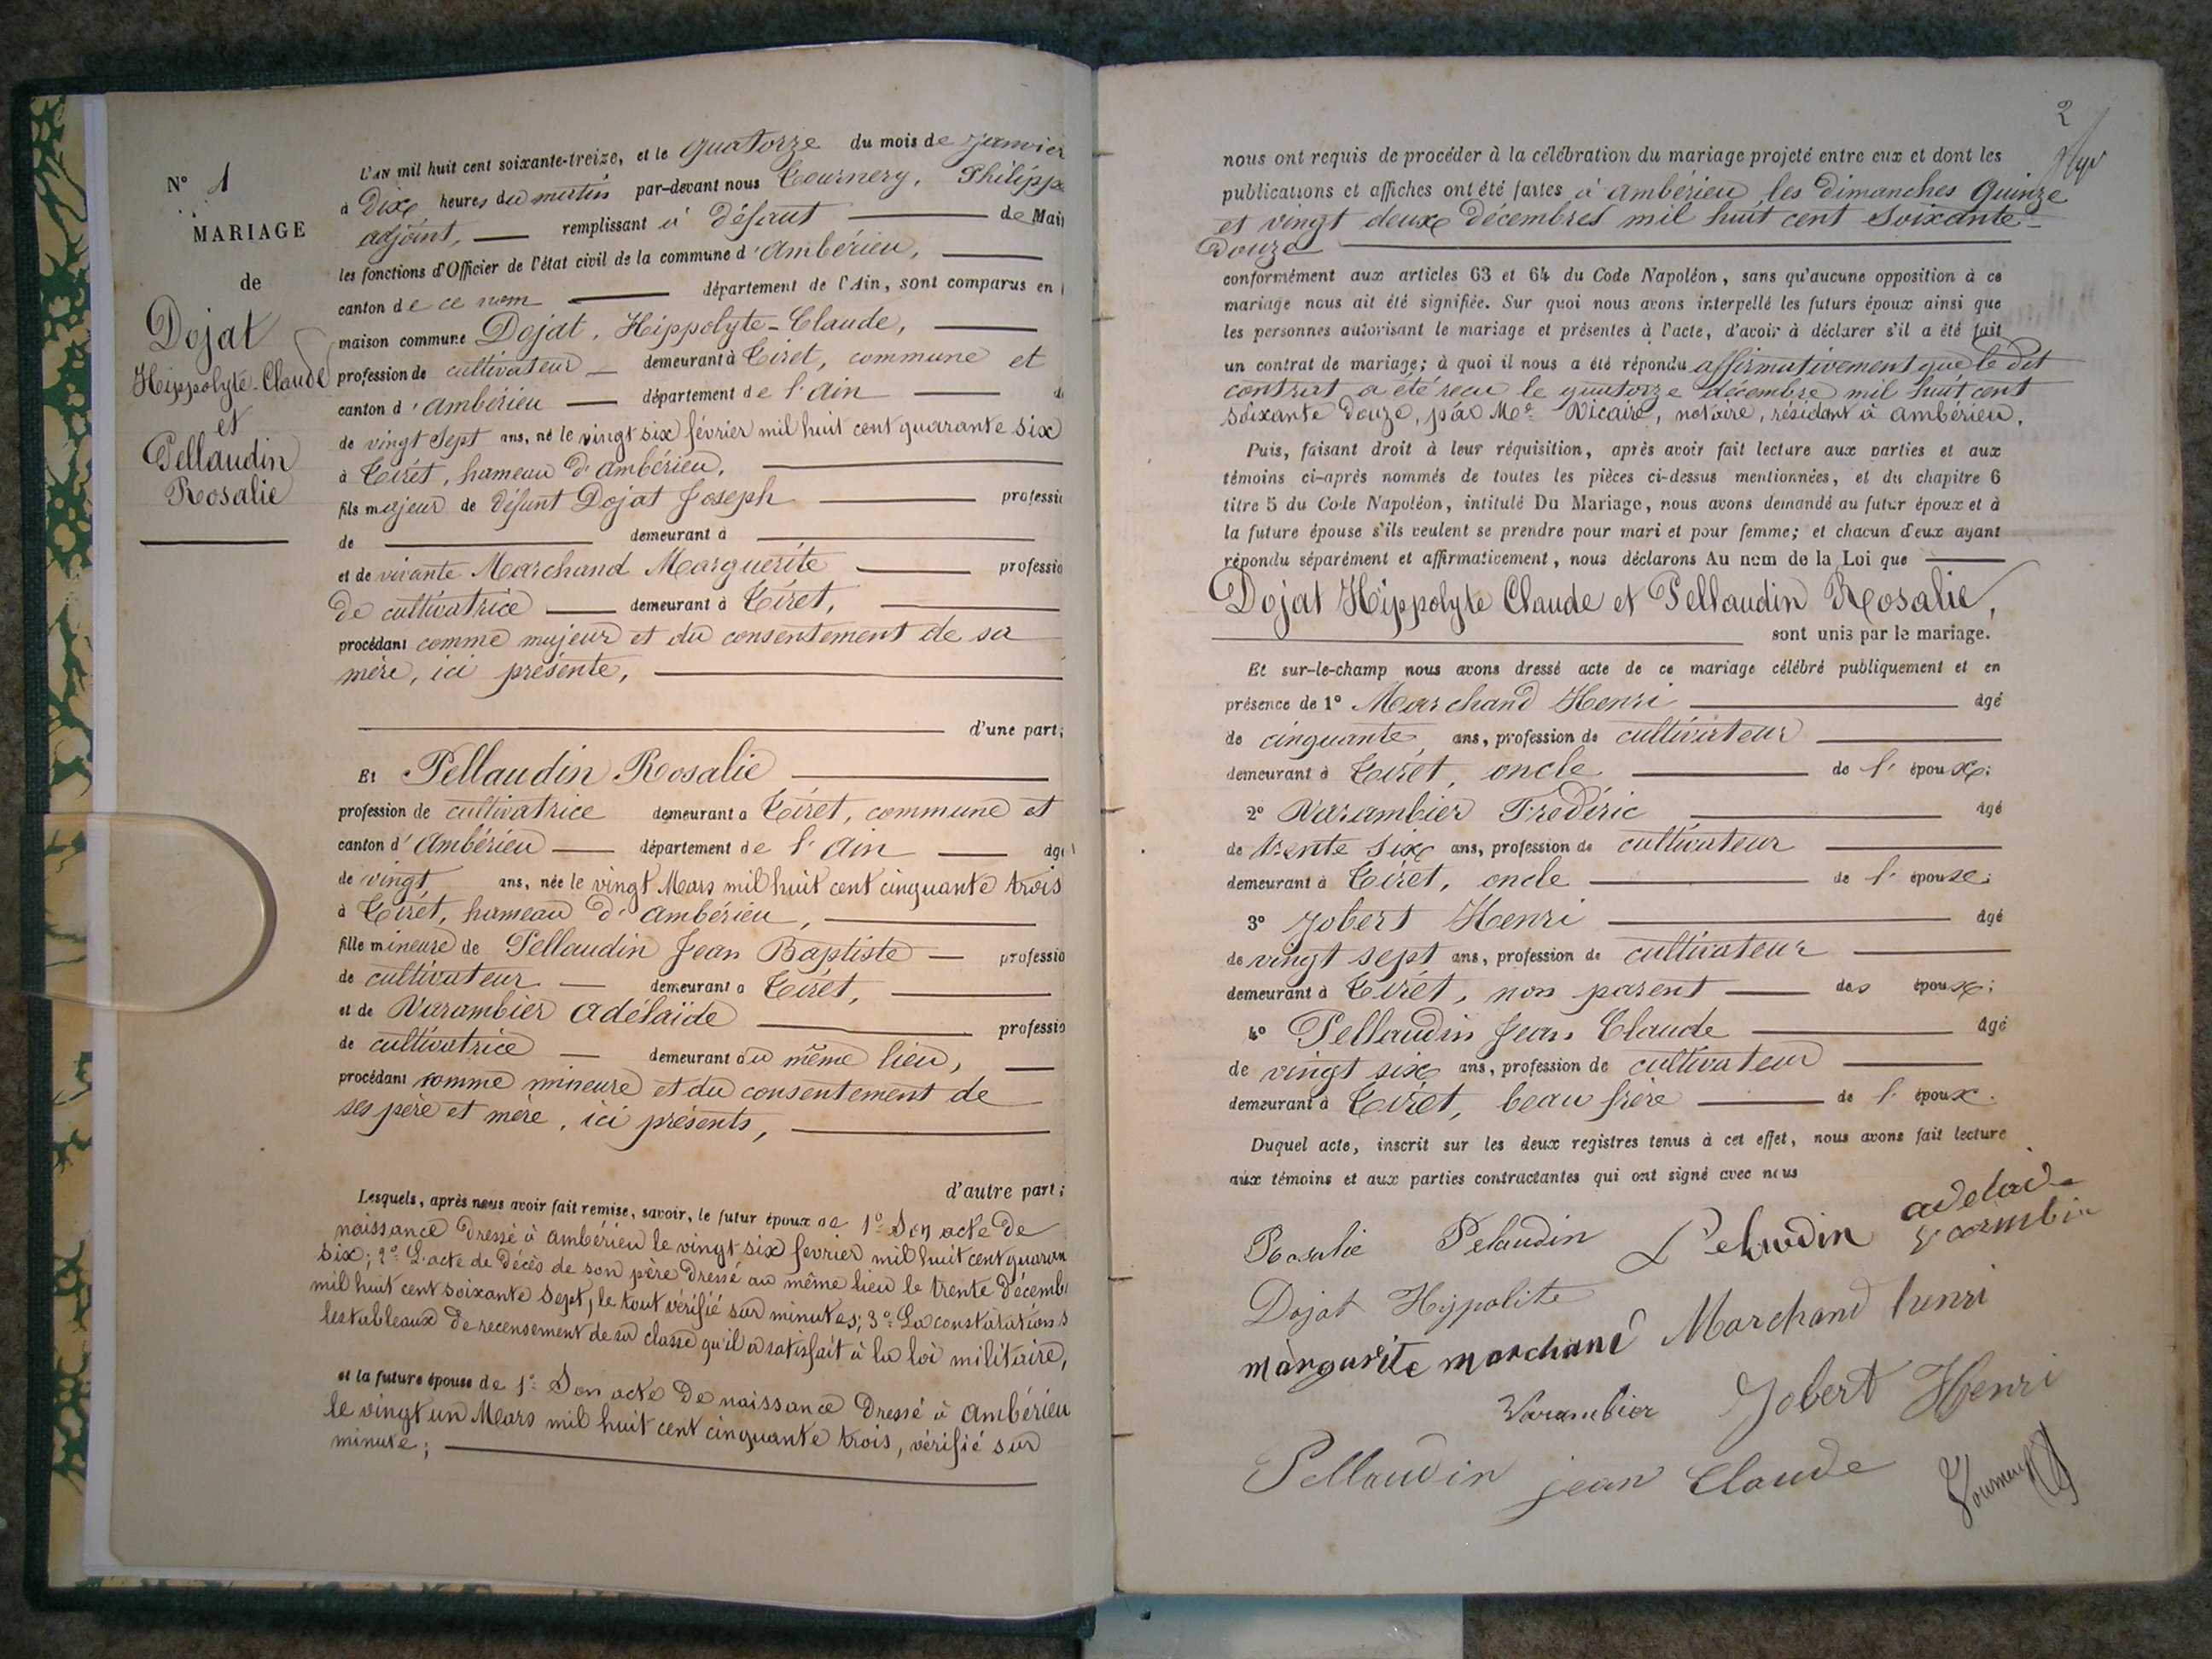 N° 1
MARIAGE
de
Dojat
Hippolyte-Claude
et
Pellaudin
Rosalie
L'AN mil huit cent soixante-treize, et le quatorze du mois de Janvier
à Dix heures du matin par-devant nous Tournery, Philippe
adjoint, remplissant à défaut de Mai
les fonctions d'Officier de l'état civil de la commune d'Ambérieu,
canton de ce nom département de l'Ain, sont comparus en
maison commune Dojat, Hippolyte-Claude,
profession de cultivateur demeurant à Tiret, commune et
canton d'Ambérieu département de l'Ain
de vingt sept ans, né le vingt six février mil huit cent quarante six
à Tiret, hameau d'Ambérieu,
fils majeur de défunt Dojat Joseph professi
de demeurant à
et de vivante Marchand Marguerite professio
de cultivatrice demeurant à Tiret,
procédant comme majeur et du consentement de sa
mère, ici présente,
d'une part;
Et Pellaudin Rosalie
profession de cultivatrice demeurant à Tiret, commune et
canton d'Ambérieu département de l'Ain âgé
de vingt ans, née le vingt Mars mil huit cent cinquante trois
à Tiret, hameau d'Ambérieu,
fille mineure de Pellaudin Jean Baptiste professio
de cultivateur demeurant à Tiret,
et de Varambier Adélaïde professio
de cultivatrice demeurant au même lieu,
procédant comme mineure et du consentement de
ses père et mère, ici présents,
d'autre part;
Lesquels, après nous avoir fait remise, savoir, le futur époux de 1° Son acte de
naissance dressé à Ambérieu le vingt six février mil huit cent quaran
six; 2° L'acte de décès de son père dressé au même lieu le trente décemb
mil huit cent soixante sept, le tout vérifié sur minutes; 3° La constatation s
les tableaux de recensement de sa classe qu'il a satisfait à la loi militaire,
et la future épouse de 1° Son acte de naissance dressé à Ambérieu
le vingt un Mars mil huit cent cinquante trois, vérifié sur
minute;
2
nous ont requis de procéder à la célébration du mariage projeté entre eux et dont les
publications et affiches ont été faites à Ambérieu, les dimanches quinze
et vingt deux décembres mil huit cent soixante-
douze
conformément aux articles 63 et 64 du Code Napoléon, sans qu'aucune opposition à ce
mariage nous ait été signifiée. Sur quoi nous avons interpellé les futurs époux ainsi que
les personnes autorisant le mariage et présentes à l'acte, d'avoir à déclarer s'il a été fait
un contrat de mariage; à quoi il nous a été répondu affirmativement que le dit
contrat a été reçu le quatorze décembre mil huit cent
soixante douze, par Me Vicaire, notaire, résidant à Ambérieu.
Puis, faisant droit à leur réquisition, après avoir fait lecture aux parties et aux
témoins ci-après nommés de toutes les pièces ci-dessus mentionnées, et du chapitre 6
titre 5 du Code Napoléon, intitulé Du Mariage, nous avons demandé au futur époux et à
la future épouse s'ils veulent se prendre pour mari et pour femme; et chacun d'eux ayant
répondu séparément et affirmativement, nous déclarons Au nom de la Loi que
Dojat Hippolyte Claude et Pellaudin Rosalie,
sont unis par le mariage.
Et sur-le-champ nous avons dressé acte de ce mariage célébré publiquement et en
présence de 1° Marchand Henri âgé
de cinquante ans, profession de cultivateur
demeurant à Tiret, oncle de l'époux;
2° Varambier Frédéric âgé
de trente six ans, profession de cultivateur
demeurant à Tiret, oncle de l'épouse;
3° Jobert Henri âgé
de vingt sept ans, profession de cultivateur
demeurant à Tiret, non parent des époux;
4° Pellaudin Jean Claude âgé
de vingt six ans, profession de cultivateur
demeurant à Tiret, beau frère de l'époux.
Duquel acte, inscrit sur les deux registres tenus à cet effet, nous avons fait lecture
aux témoins et aux parties contractantes qui ont signé avec nous
Rosalie Pelaudin Pelaudin adelaide
varambier
Dojat Hyppolite
marguerite marchand Marchand henri
Varambier Jobert Henri
Pellaudin jean Claude Tournery